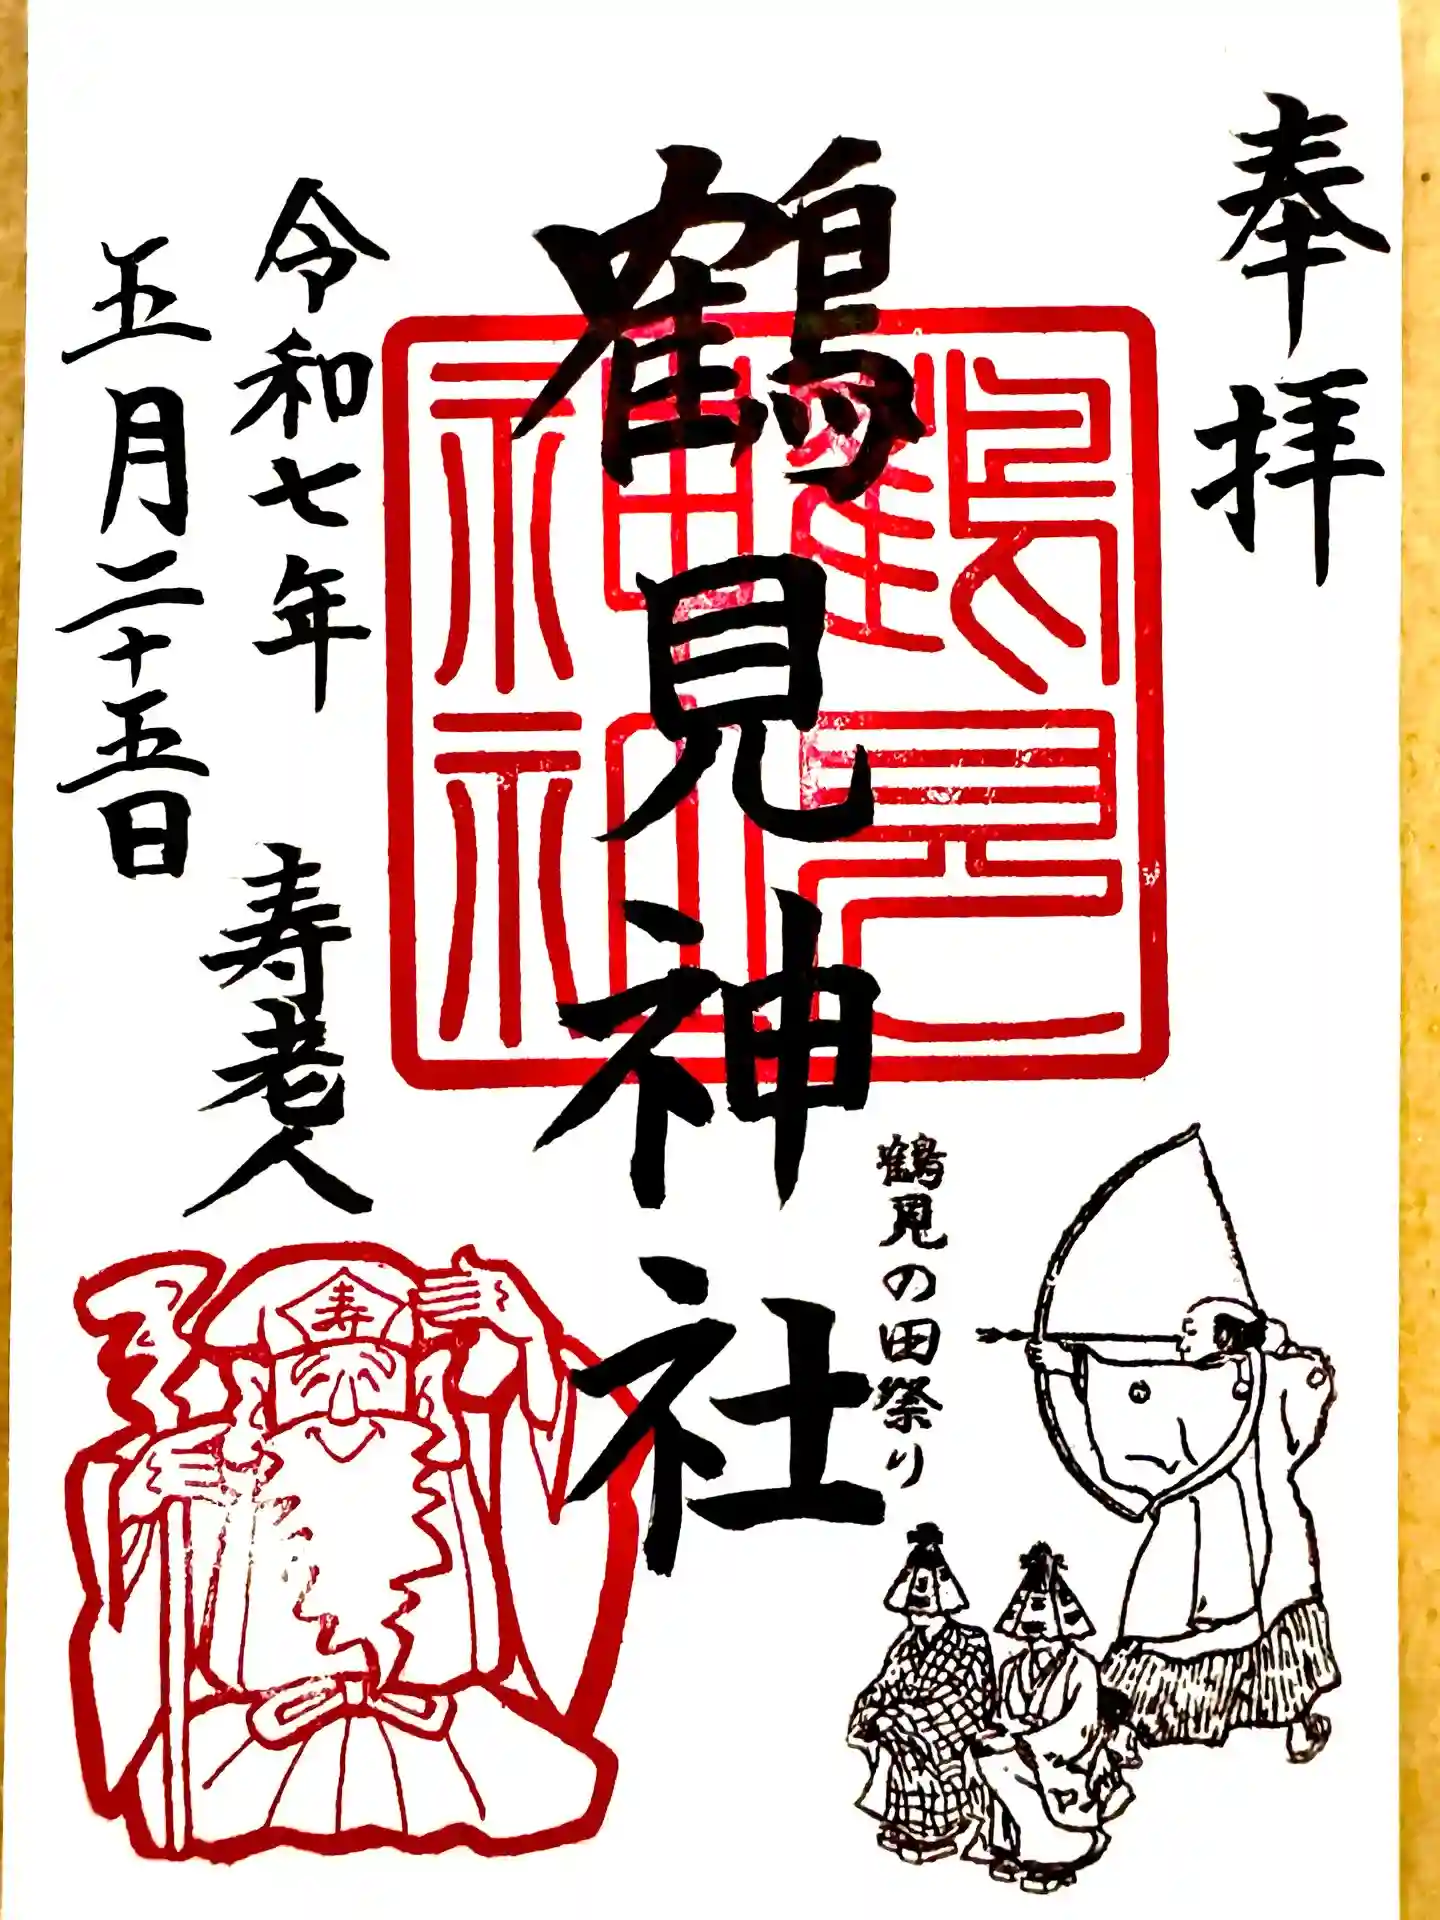 奉拝
鶴見神社
鶴見神社
鶴見の田祭り
令和七年
五月二十五日
寿老人
寿